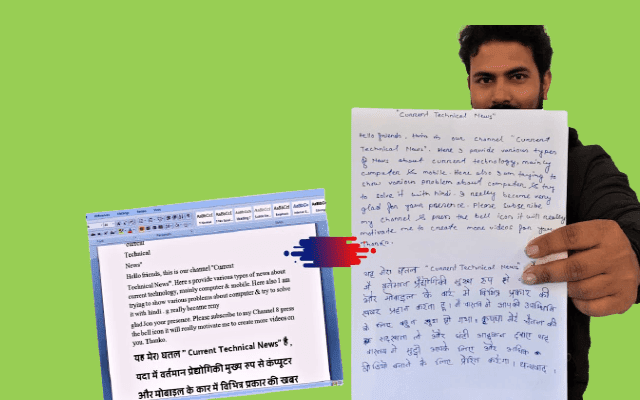 Current
Technical
News"
Hello friends, this is our channel "Current
Technical News". Here s provide various types of news about
current technology, mainly computer & mobile. Here also I am
trying to show various problems about computer & try to solve
it with hindi . g really become easy
glad Jon your presence. Please subscribe to my Channel 8 press
the bell icon it will really motivate me to create more videos on
you. Thanko.
यह मेरा घतल " Current Technical News" है ,
पदा में वर्तमान प्रेद्योगिकी मुख्य रुप से कंप्यूटर
और मोबाइल के कार में विभित्र प्रकार की खबर
"Current Technical News"
Hello friends, this is our channel "Current
Technical News". Here I provide various types
of News about current technology, mainly
computer & mobile. Here also I am trying to
show various problem about computer & try
to solve it with hindi. I really become very
glad for your presence. Please subscribe
my channel & press the bell icon it will really
motivate me to create more videos for you.
Thanks.
यह मेरा "Current Technical News"
में वर्तमान प्रौद्योगिकी मुख्य रुप से
और मोबाइल के बारे में विभिन्न प्रकार की
खबर प्रदान करता हूँ। मैं वास्तव में आपकी उपस्थिति
के लिए बहुत खुश हो गया। कृपया मेरे चैनल की
और घंटी आइकन दबाएं यह
वास्तव में मुझे आपके लिए और अधिक
विडियो बनाने के लिए प्रेरित करेगा। धन्यवाद।